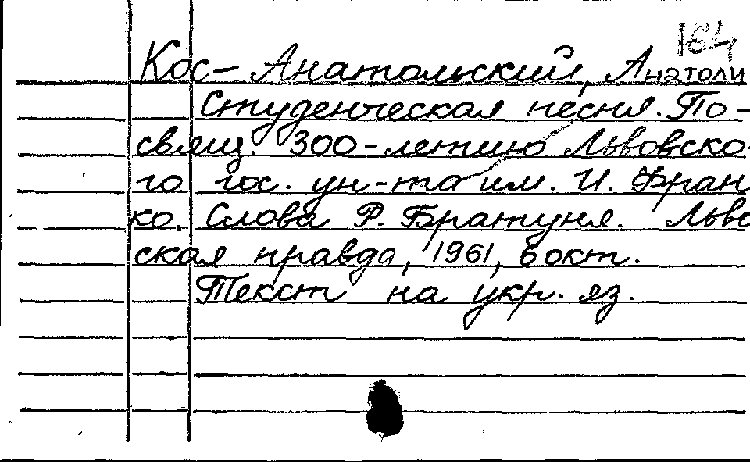 164
Кос-Анатольский, Анатоли
Студенческая песня. По-
свящ. 300-летию Львовско-
го гос. ун-та им. И. Фран
ко. Слова Р. Братуня. Львов
ская правда, 1961, 6 окт.
Текст на укр. яз.